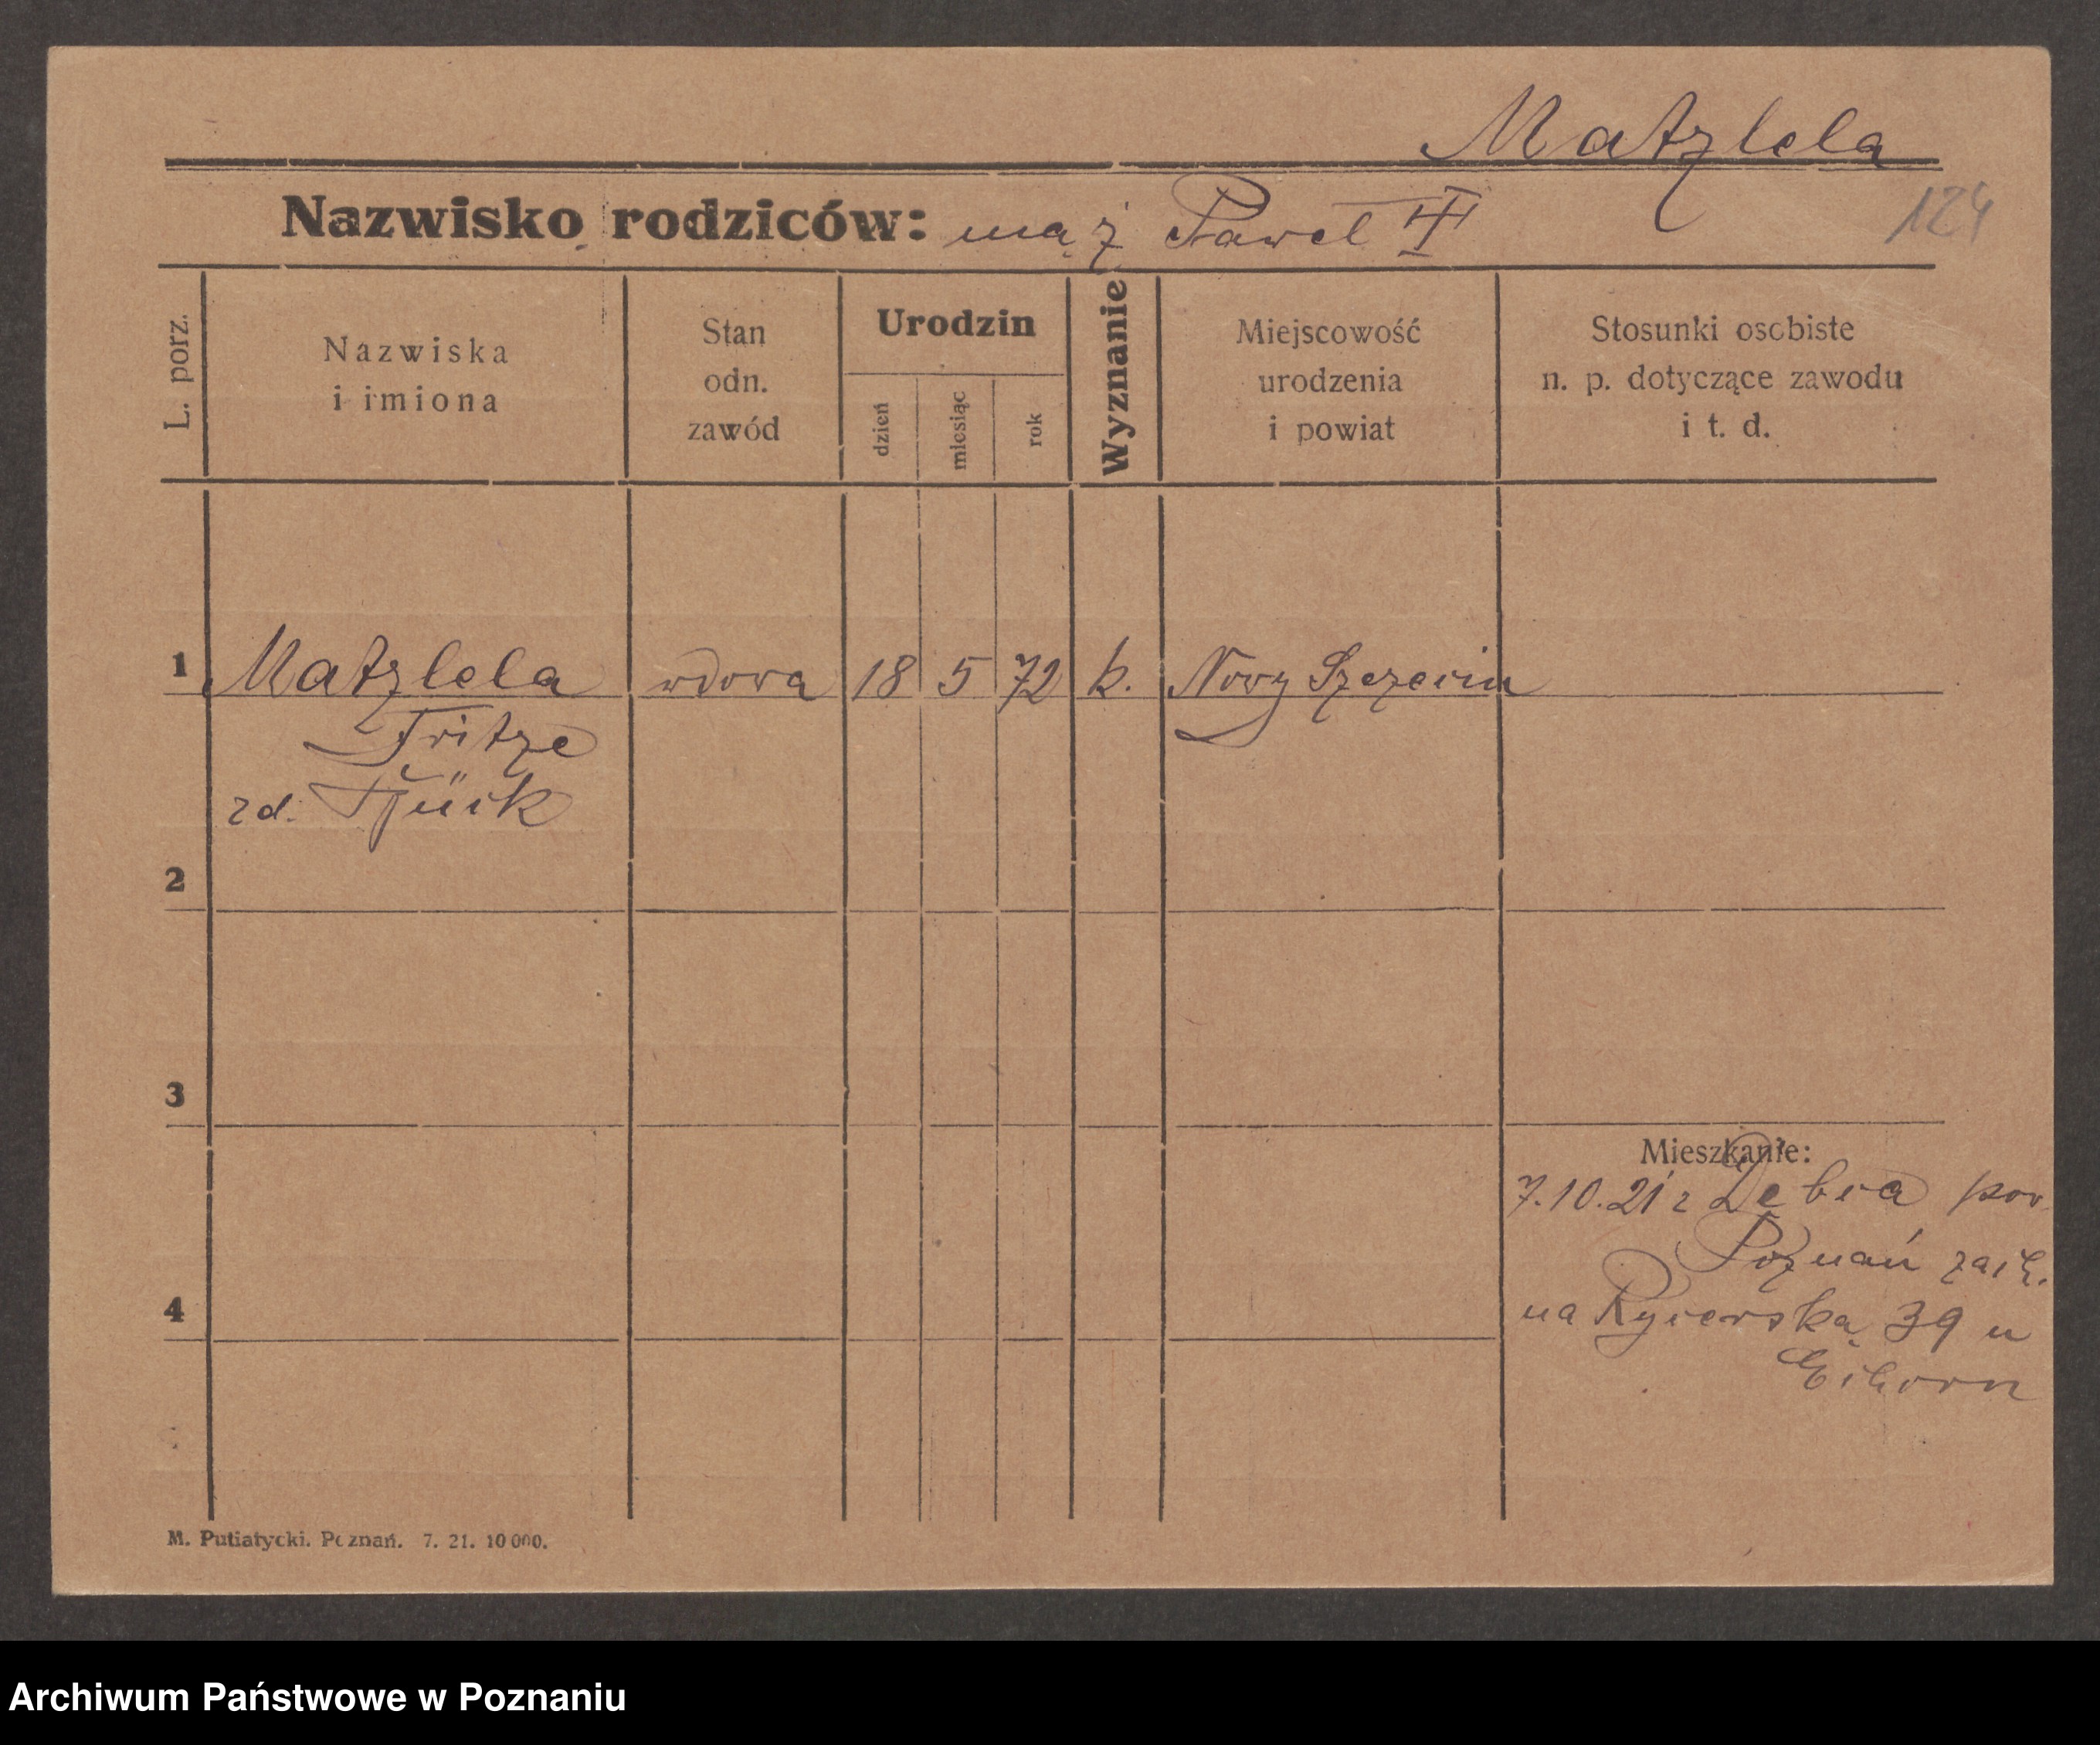 Matzlela
Nazwisko rodziców: mąż Paweł
124
L. porz.
Nazwiska
i imiona
Stan
odn.
zawód
Urodzin
dzień
miesiąc
rok
Wyznanie
Miejscowość
urodzenia
i powiat
Stosunki osobiste
n. p. dotyczące zawodu
i t. d.
1 Matzlela wdowa 18 5 72 k. Nowy Szczecin
Fritze
zd.
2
3
Mieszkanie:
7.10.21 z pow.
Poznań zach.
4
na Rycerską 39 u
Eihorn
M. Putiatycki. Poznań. 7. 21. 10000.
Archiwum Państwowe w Poznaniu